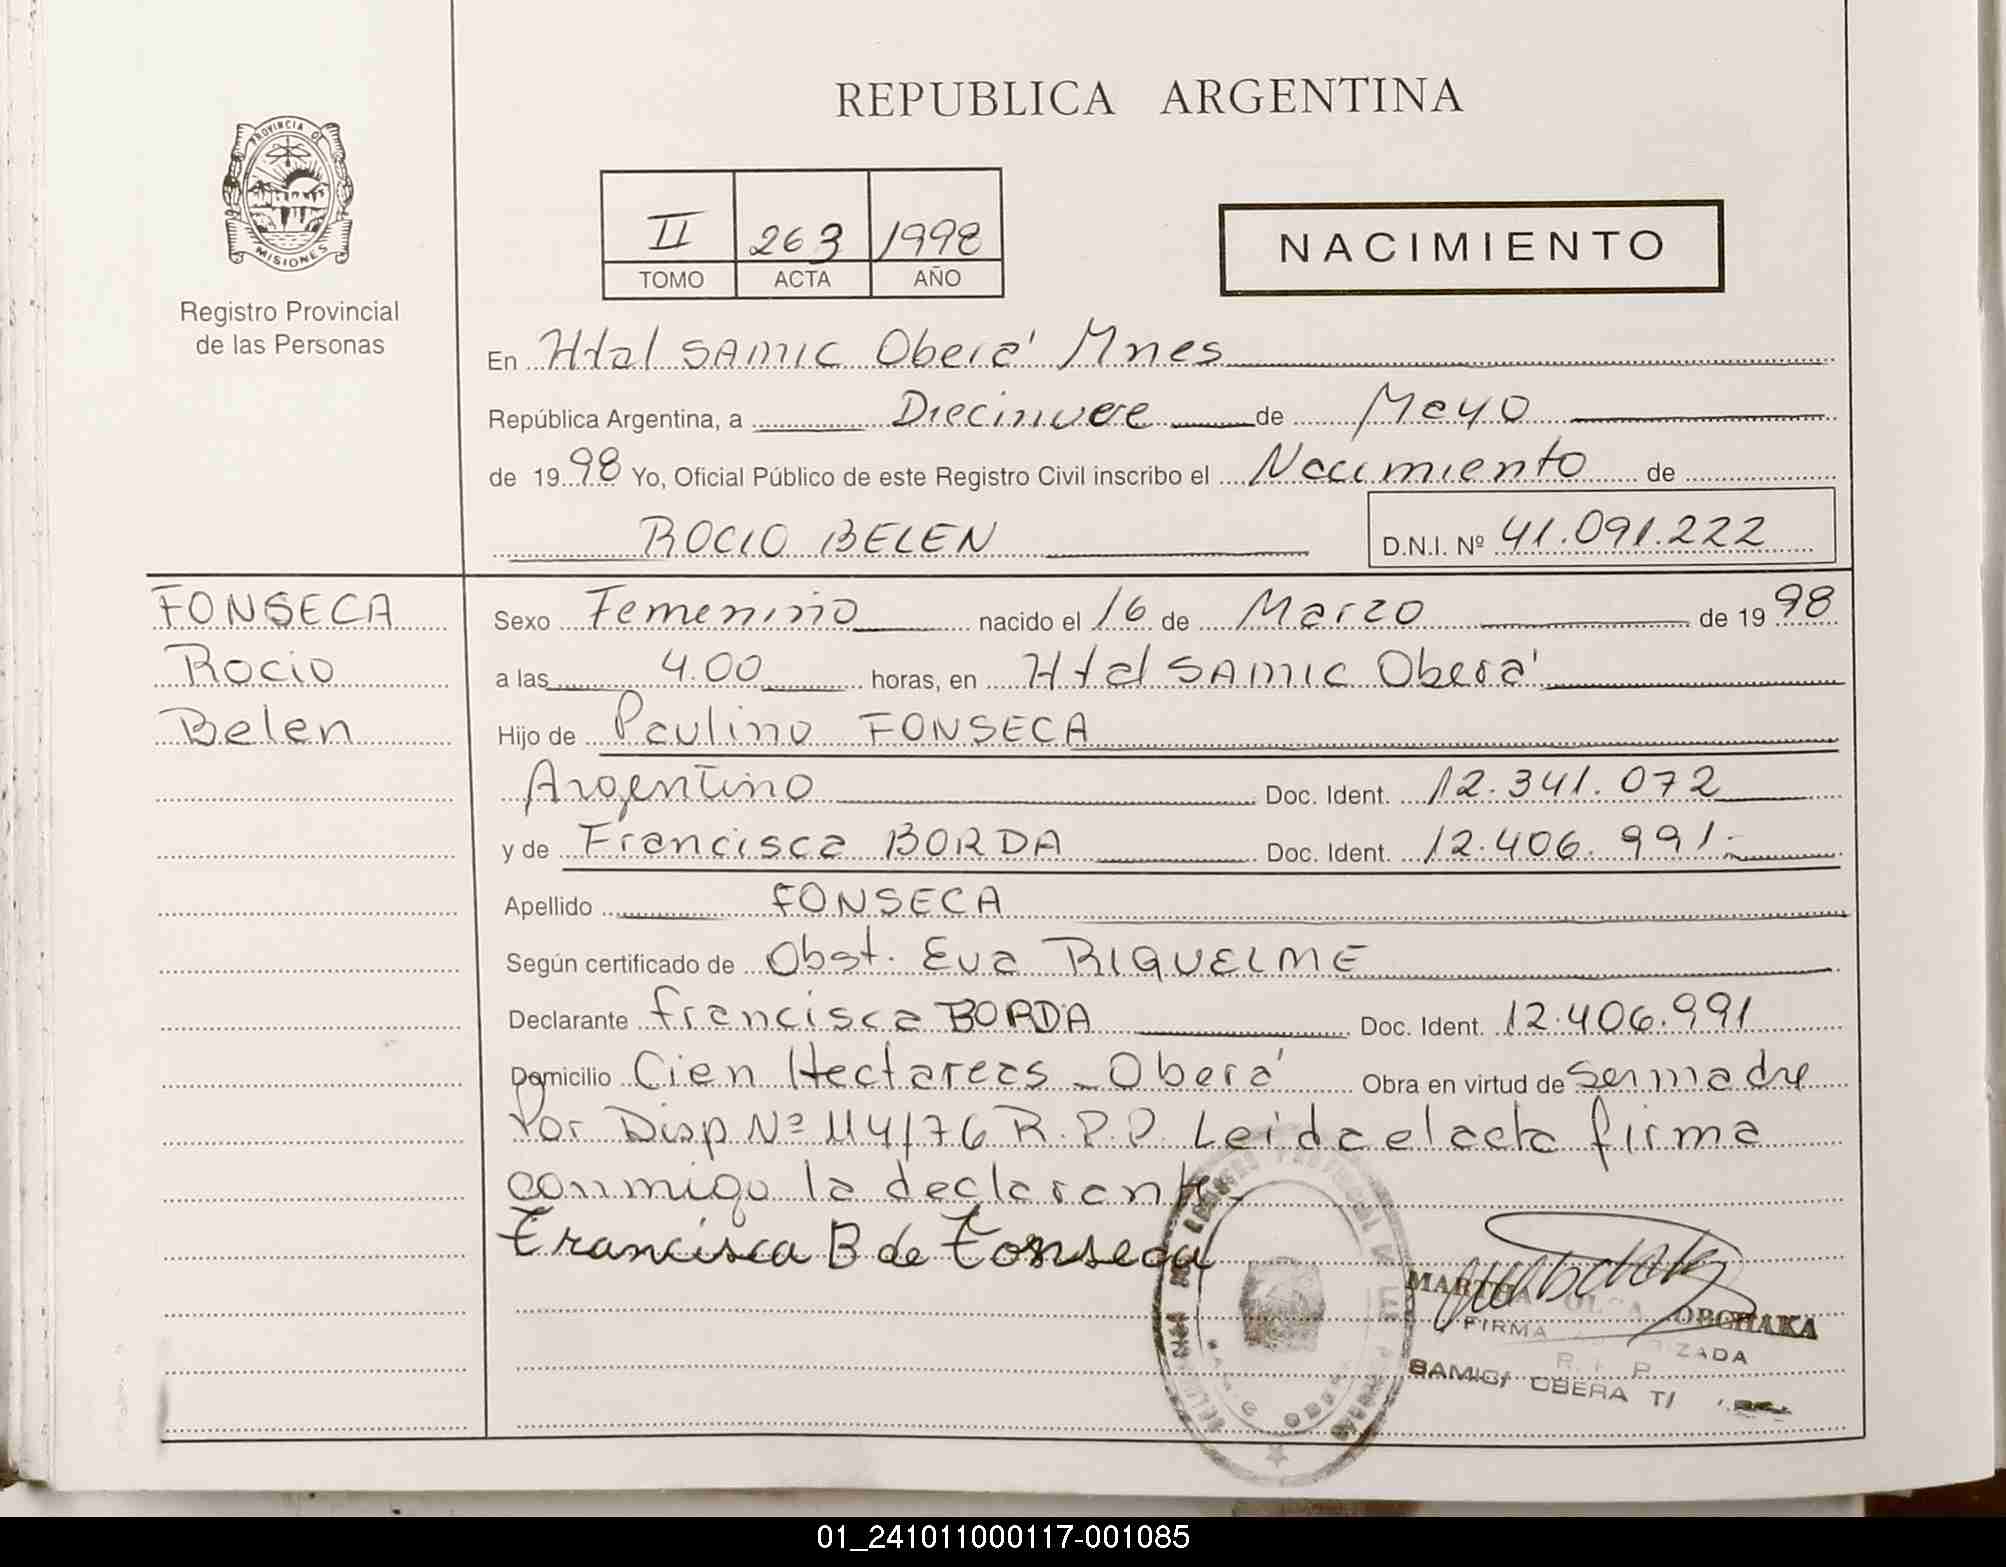 REPUBLICA ARGENTINA
PROVINCIA D
MISIONES
Registro Provincial
de las Personas
II 263 1998
TOMO ACTA AÑO
NACIMIENTO
En Htal SAMIC Oberá Mnes
República Argentina, a Diecinueve de Mayo
de 1998 Yo, Oficial Público de este Registro Civil inscribo el Nacimiento de
ROCIO BELEN D.N.I. Nº 41.091.222
FONSECA
Rocio
Belen
Sexo Femenino nacido el 16 de Marzo de 1998
a las 4.00 horas, en Htal SAMIC Oberá
Hijo de Paulino FONSECA
Argentino Doc. Ident. 12.341.072
y de Francisca BORDA Doc. Ident. 12.406.991.-
Apellido FONSECA
Según certificado de Obst. Eva RIQUELME
Declarante francisca BORDA Doc. Ident. 12.406.991
Domicilio Cien Hectareas - Oberá Obra en virtud de ser madre
Por Disp Nº 114/76 R.P.P. Leida el acta firma
conmigo la declarante-
Francisca B de Fonseca
MARTHA OLGA
FIRMA
R. P.
SAMIC/ OBERA
01_241011000117-001085